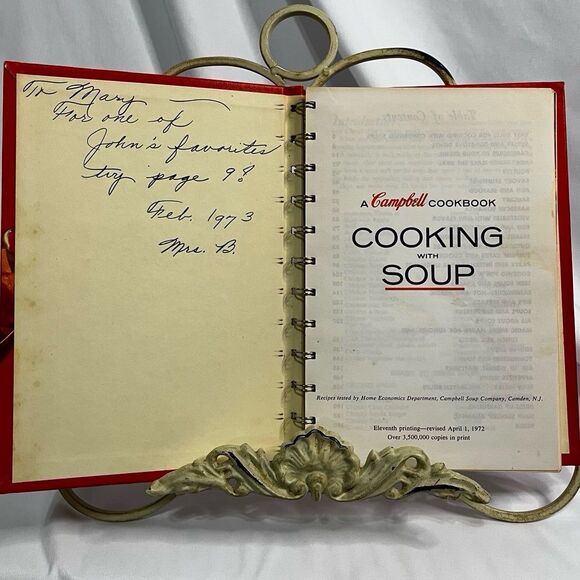 To Mary —
For one of
John's favorites
try page 9?
Feb. 1973
Mrs. B.
A Campbell COOKBOOK
COOKING
WITH
SOUP
Recipes tested by Home Economics Department, Campbell Soup Company, Camden, N.J.
Eleventh printing—revised April 1, 1972
Over 3,500,000 copies in print